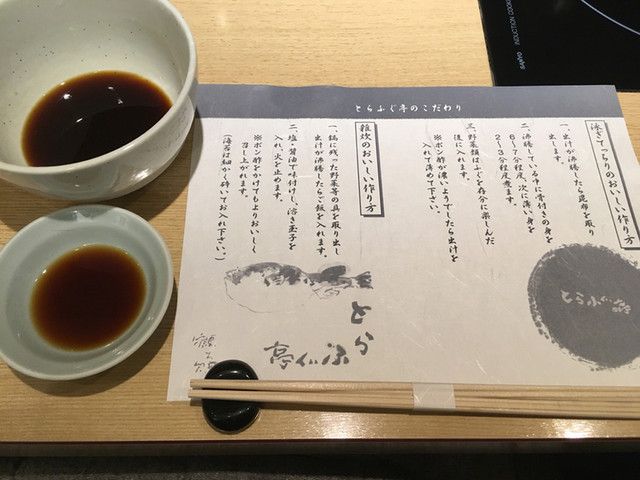 とらふぐ亭のこだわり
泳ぎてっちりのおいしい作り方
一、出汁が沸騰したら昆布を取り
出します。
二、沸騰している中に骨付きの身を
6〜7分程度、次に薄い身を
2〜3分程度煮ます。
三、野菜類はふぐを存分に楽しんだ
後に入れます。
※ポン酢が濃いようでしたら出汁を
入れて薄めて下さい。
雑炊のおいしい作り方
一、鍋に残った野菜等の具を取り出し
出汁が沸騰したらご飯を入れます。
二、塩・醤油で味付けし、溶き玉子を
入れ、火を止めます。
※ポン酢をかけてもよりおいしく
召し上がれます。
(海苔は細かく砕いてお入れ下さい。)
とらふぐ亭
とら
ふぐ亭
SANYO INDUCTION COOKER